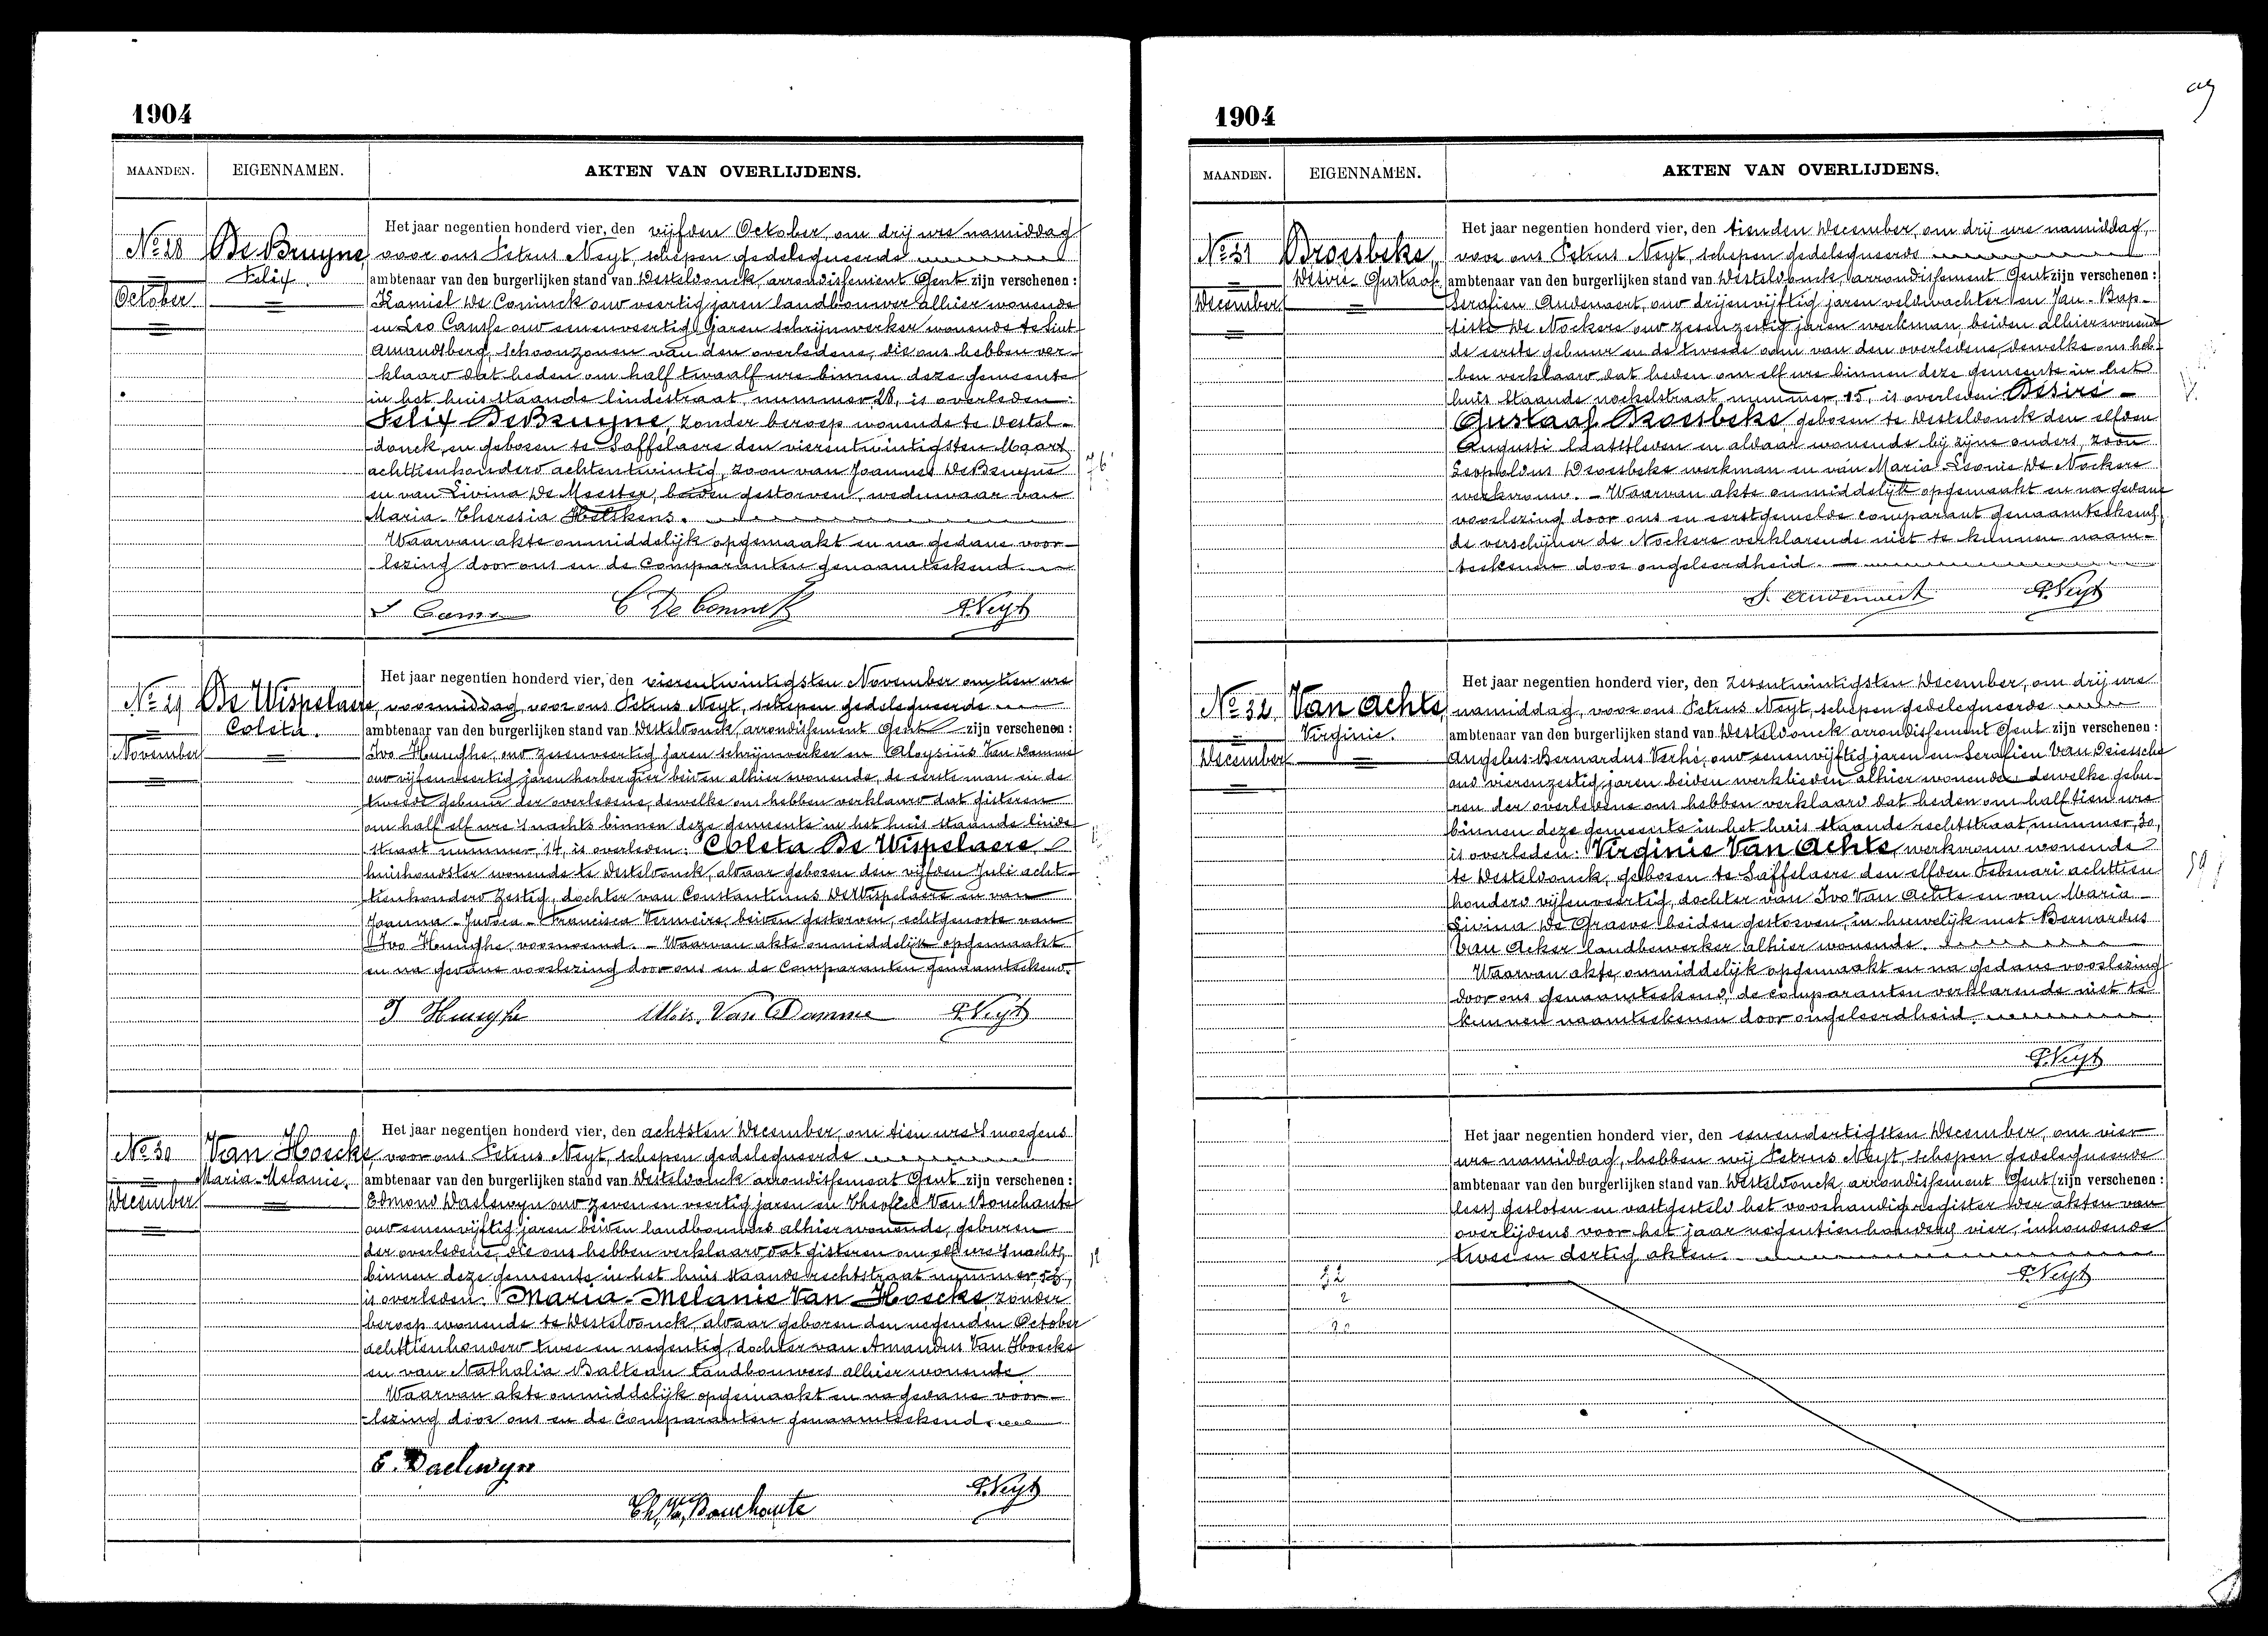 1904
MAANDEN. EIGENNAMEN. AKTEN VAN OVERLIJDENS.
Het jaar negentien honderd vier, den vijfden October, om drij ure namiddag
No 28 De Bruyne, voor ons Petrus Neyt, schepen gedelegueerde
Felix. ambtenaar van den burgerlijken stand van Desteldonck, arrondissement Gent zijn verschenen :
October Kamiel De Coninck oud veertig jaren landbouwer alhier wonende
en Leo Camse oud eenenveertig jaren schrijnwerker wonende te Sint
Amandsberg, schoonzonen van den overledene, die ons hebben ver-
klaard dat heden om half twaalf ure binnen deze gemeente
in het huis staande lindestraat nummer 28, is overleden:
Felix De Bruyne, zonder beroep wonende te Destel-
donck, en geboren te Saffelaere den vierentwintigsten Maart
achttienhonderd achtentwintig, zoon van Joannes De Bruyne
en van Livina De Meester, beiden gestorven, weduwaar van
Maria-Theresia Helskens.
Waarvan akte onmiddelijk opgemaakt en na gedane voor-
lezing door ons en de comparanten genaamteekend.
C De Coninck P. Neyt
Het jaar negentien honderd vier, den vierentwintigsten November om tien ure
No 29 De Wispelaere, voormiddag, voor ons Petrus Neyt, schepen gedelegueerde
Coleta. ambtenaar van den burgerlijken stand van Desteldonck, arrondissement Gent zijn verschenen :
November Ivo Heughe, oud zesenveertig jaren schrijnwerker en Aloysius Van Damme
oud vijfenveertig jaren herbergier beiden alhier wonende, de eerste man en de
tweede gebuur der overledene, dewelke ons hebben verklaard dat gisteren
om half elf ure 's nachts binnen deze gemeente in het huis staande linde
straat nummer 14, is overleden: Coleta De Wispelaere
huishoudster wonende te Desteldonck, aldaar geboren den vijfden Juli acht-
tienhonderd zestig, dochter van Constantinus De Wispelaere en van
Joanna-Judoca-Francisca Vermeire, beiden gestorven, echtgenoote van
Ivo Heughe, voornoemd. - Waarvan akte onmiddelijk opgemaakt
en na gedane voorlezing door ons en de comparanten genaamteekend.
I Heughe Alois. Van Damme P. Neyt
Het jaar negentien honderd vier, den achtsten December, om tien ure 's morgens
No 30 Van Hoecke, voor ons Petrus Neyt, schepen gedelegueerde
Maria-Melanie. ambtenaar van den burgerlijken stand van Desteldonck arrondissement Gent zijn verschenen :
December Edmond Daelewyn oud zeven en veertig jaren en Theofiel Van Bouchaute
oud eenenvijftig jaren beiden landbouwers alhier wonende, geburen
der overledene, die ons hebben verklaard dat gisteren om elf ure 's nachts
binnen deze gemeente in het huis staande rechtstraat nummer 52,
is overleden: Maria-Melanie Van Hoecke, zonder
beroep wonende te Desteldonck, aldaar geboren den negenden October
achttienhonderd twee en negentig, dochter van Amandus Van Hoecke
en van Nathalia Balteau landbouwers alhier wonende.
Waarvan akte onmiddelijk opgemaakt en na gedane voor-
lezing door ons en de comparanten genaamteekend.
E. Daelewyn
P. Neyt
Th. Van Bouchaute
1904
MAANDEN. EIGENNAMEN. AKTEN VAN OVERLIJDENS.
Het jaar negentien honderd vier, den tienden December, om drij ure namiddag,
No 31 Droesbeke, voor ons Petrus Neyt, schepen gedelegueerde
Désiré-Gustaaf. ambtenaar van den burgerlijken stand van Desteldonck, arrondissement Gent zijn verschenen :
December Serafien Audenaert, oud drijenvijftig jaren veldwachter en Jan-Bap-
tiste De Nockere oud zesenzestig jaren werkman, beiden alhier wonende
de eerste gebuur en de tweede oom van den overledene, dewelke ons heb-
ben verklaard dat heden om elf ure binnen deze gemeente in het
huis staande nockelstraat, nummer 15, is overleden Désiré-
Gustaaf Droesbeke, geboren te Desteldonck den elfden
Augusti laatstleden en aldaar wonende bij zijne ouders, zoon
Leopoldus Droesbeke werkman en van Maria-Leonie De Nockere
werkvrouw. - Waarvan akte onmiddelijk opgemaakt en na gedane
voorlezing door ons en eerstgemelde comparant genaamteekend,
de verschijner de Nockere verklarende niet te kunnen naam-
teekenen door ongeleerdheid.
S. Audenaert P. Neyt
Het jaar negentien honderd vier, den zesentwintigsten December, om drij ure
No 32 Van Achte, namiddag, voor ons Petrus Neyt, schepen gedelegueerde
Virginie. ambtenaar van den burgerlijken stand van Desteldonck arrondissement Gent zijn verschenen :
December Angelus-Bernardus Verhé, oud eenenvijftig jaren en Serafien Van Driessche
oud vierenzestig jaren beiden werklieden alhier wonende dewelke gebu-
ren der overledene ons hebben verklaard dat heden om half tien ure
binnen deze gemeente in het huis staande rechtstraat, nummer 30,
is overleden: Virginie Van Achte, werkvrouw wonende
te Desteldonck, geboren te Saffelaere den elfden Februari achttien
honderd vijfenveertig, dochter van Ivo Van Achte en van Maria-
Livina De Graeve beiden gestorven, in huwelijk met Bernardus
Van Acker landbewerker alhier wonende.
Waarvan akte, onmiddelijk opgemaakt en na gedane voorlezing
door ons genaamteekend, de comparanten verklarende niet te
kunnen naamteekenen door ongeleerdheid.
P. Neyt
Het jaar negentien honderd vier, den eenendertigsten December, om vier
ure namiddag, hebben wij Petrus Neyt, schepen gedelegueerde
ambtenaar van den burgerlijken stand van Desteldonck, arrondissement Gent (zijn verschenen :
lees) gesloten en vastgesteld het voorhandig register der akten van
overlijdens voor het jaar negentienhonderd vier, inhoudende
twee en dertig akten.
32 P. Neyt
2